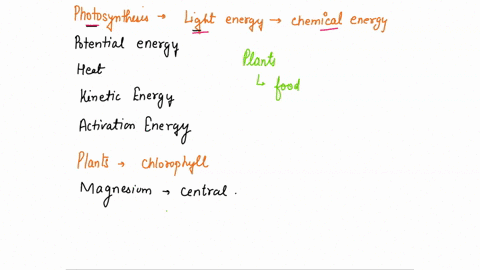 Photosynthesis → Light energy → chemical energy
Potential energy
Heat
Kinetic Energy
Activation Energy
Plants
↳ food
Plants → chlorophyll
Magnesium → central.